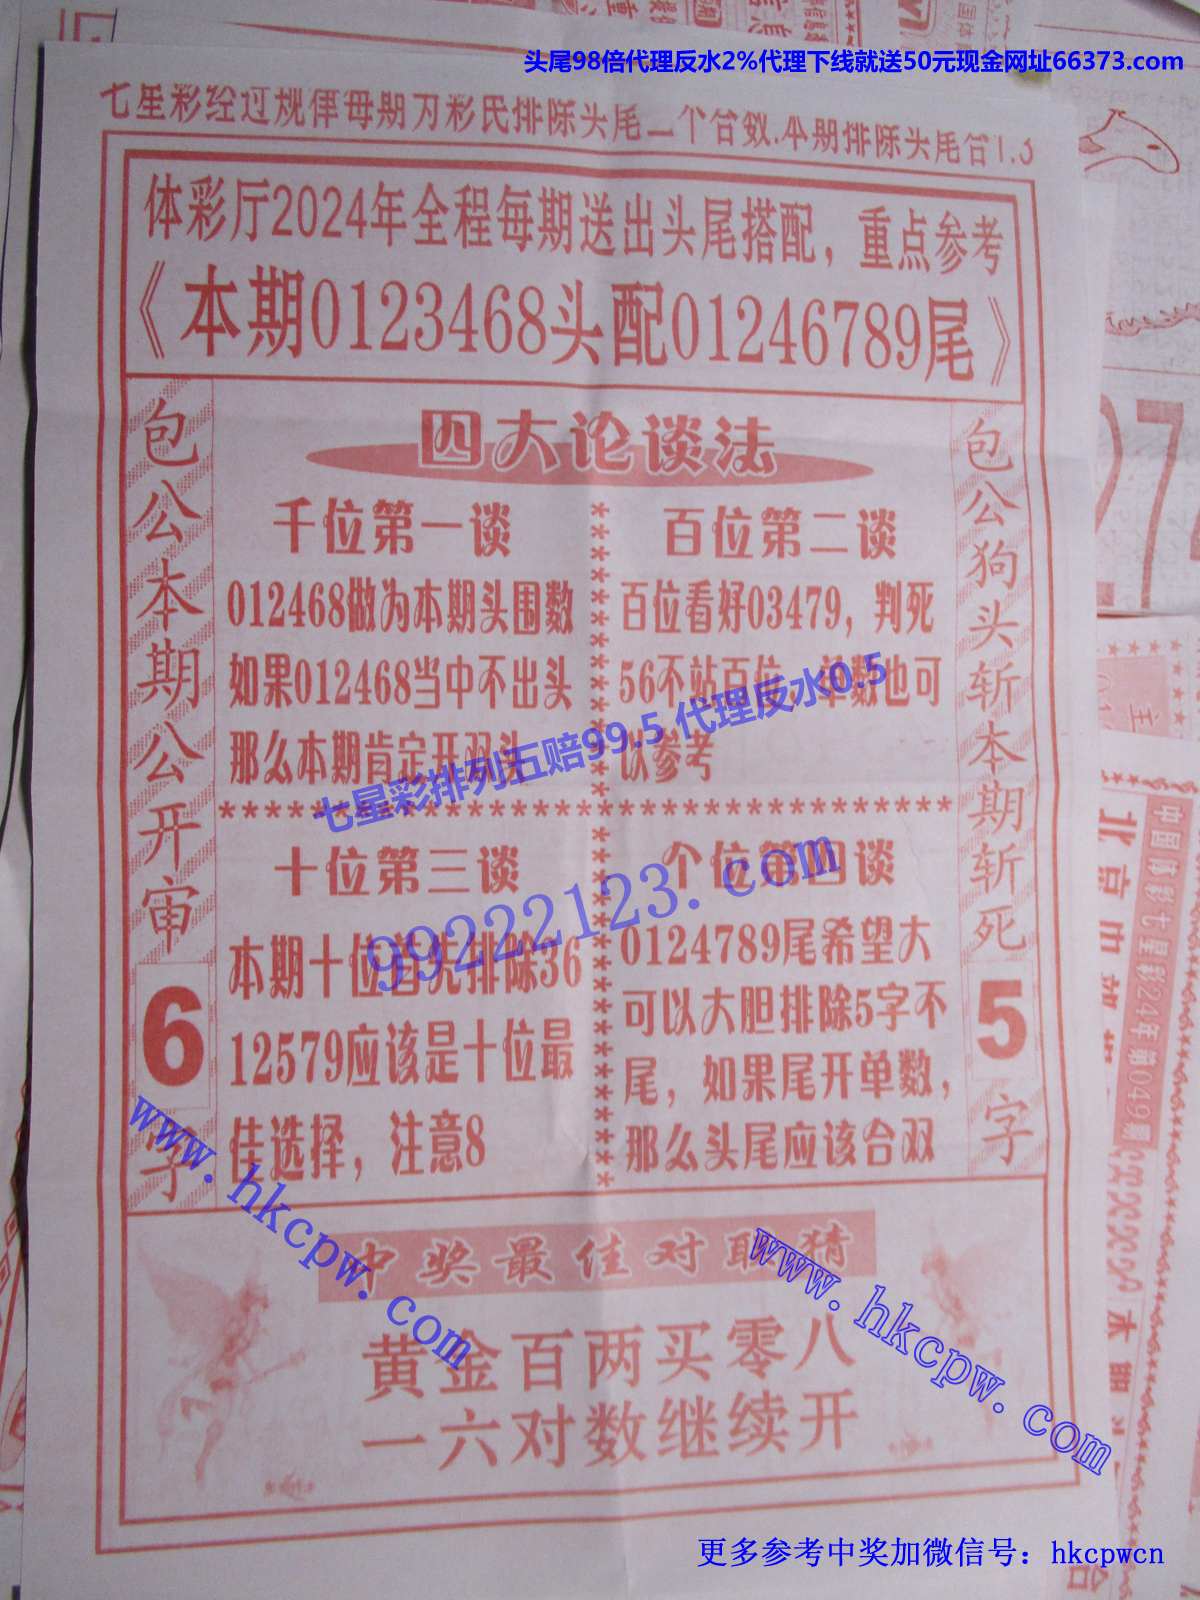 头尾98倍代理反水2%代理下线就送50元现金网址66373.com
七星彩经过规律每期为彩民排除头尾二个合数.本期排除头尾合1.3
体彩厅2024年全程每期送出头尾搭配，重点参考
《本期0123468头配01246789尾》
四大论谈法
包公本期公开审6字
千位第一谈
012468做为本期头围数
如果012468当中不出头
那么本期肯定开双头
百位第二谈
百位看好03479，判死
56不站百位，单数也可
以参考
十位第三谈
本期十位首先排除36
12579应该是十位最
佳选择，注意8
个位第四谈
0124789尾希望大
可以大胆排除5字不
尾，如果尾开单数，
那么头尾应该合双
包公狗头斩本期斩死5字
七星彩排列五赔99.5 代理反水0.5
99222123.com
中奖最佳对联猜
黄金百两买零八
一六对数继续开
www.hkcpw.com
www.hkcpw.com
中国体彩七星彩24年第049期
更多参考中奖加微信号：hkcpwcn